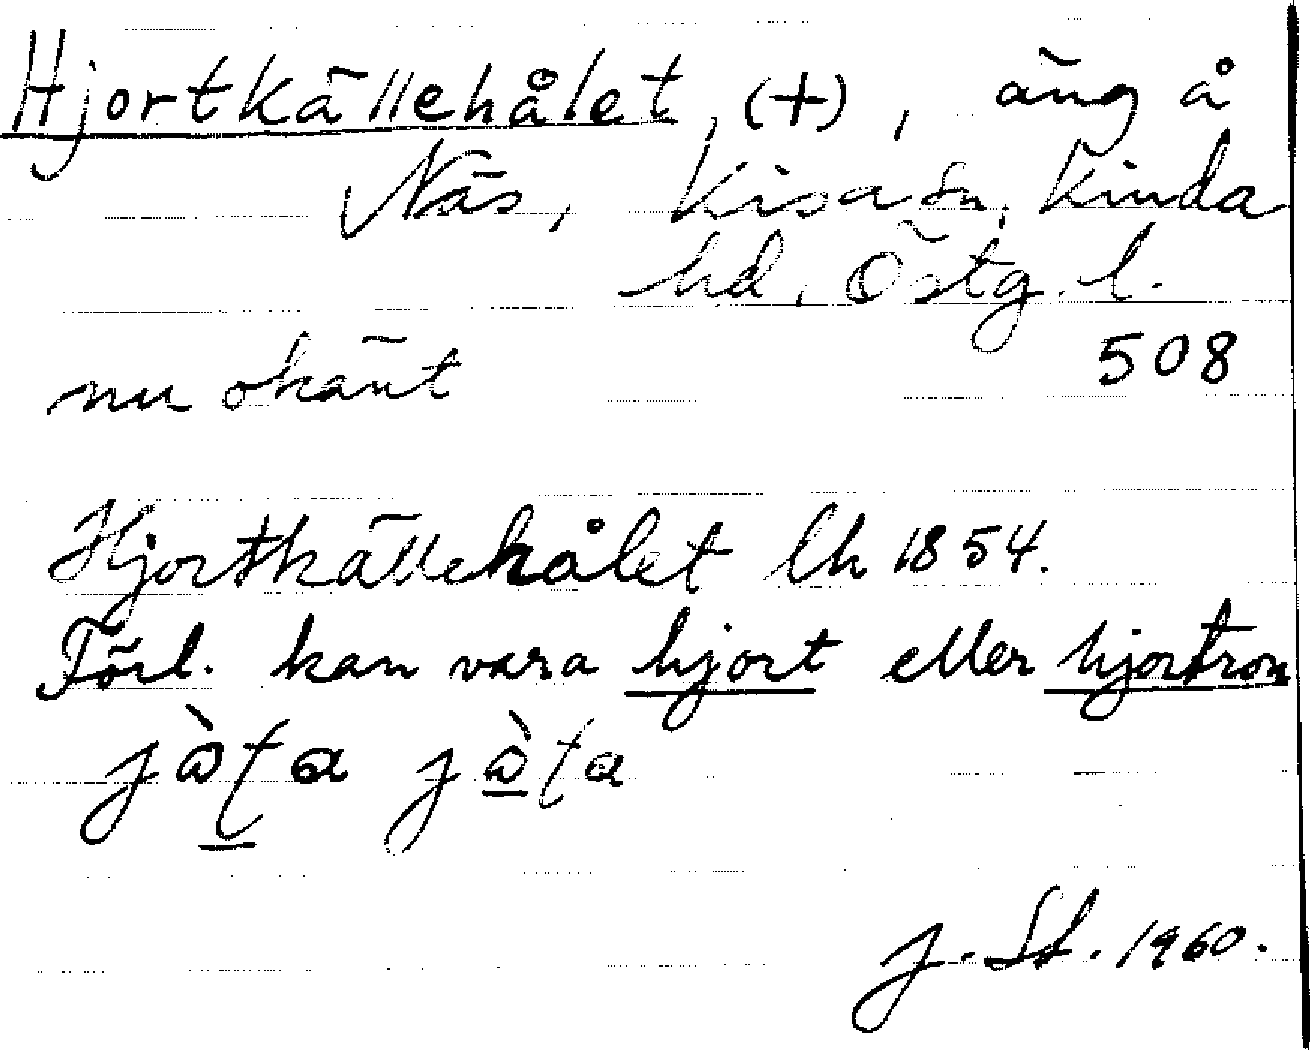 Hjortkällehålet, (+), äng å
Näs, Kisa sn, Kinda
hd, Östg. l.
nu okänt 508
Hjortkällehålet lh 1854.
Förl. kan vara hjort eller hjortron
J. St. 1960.